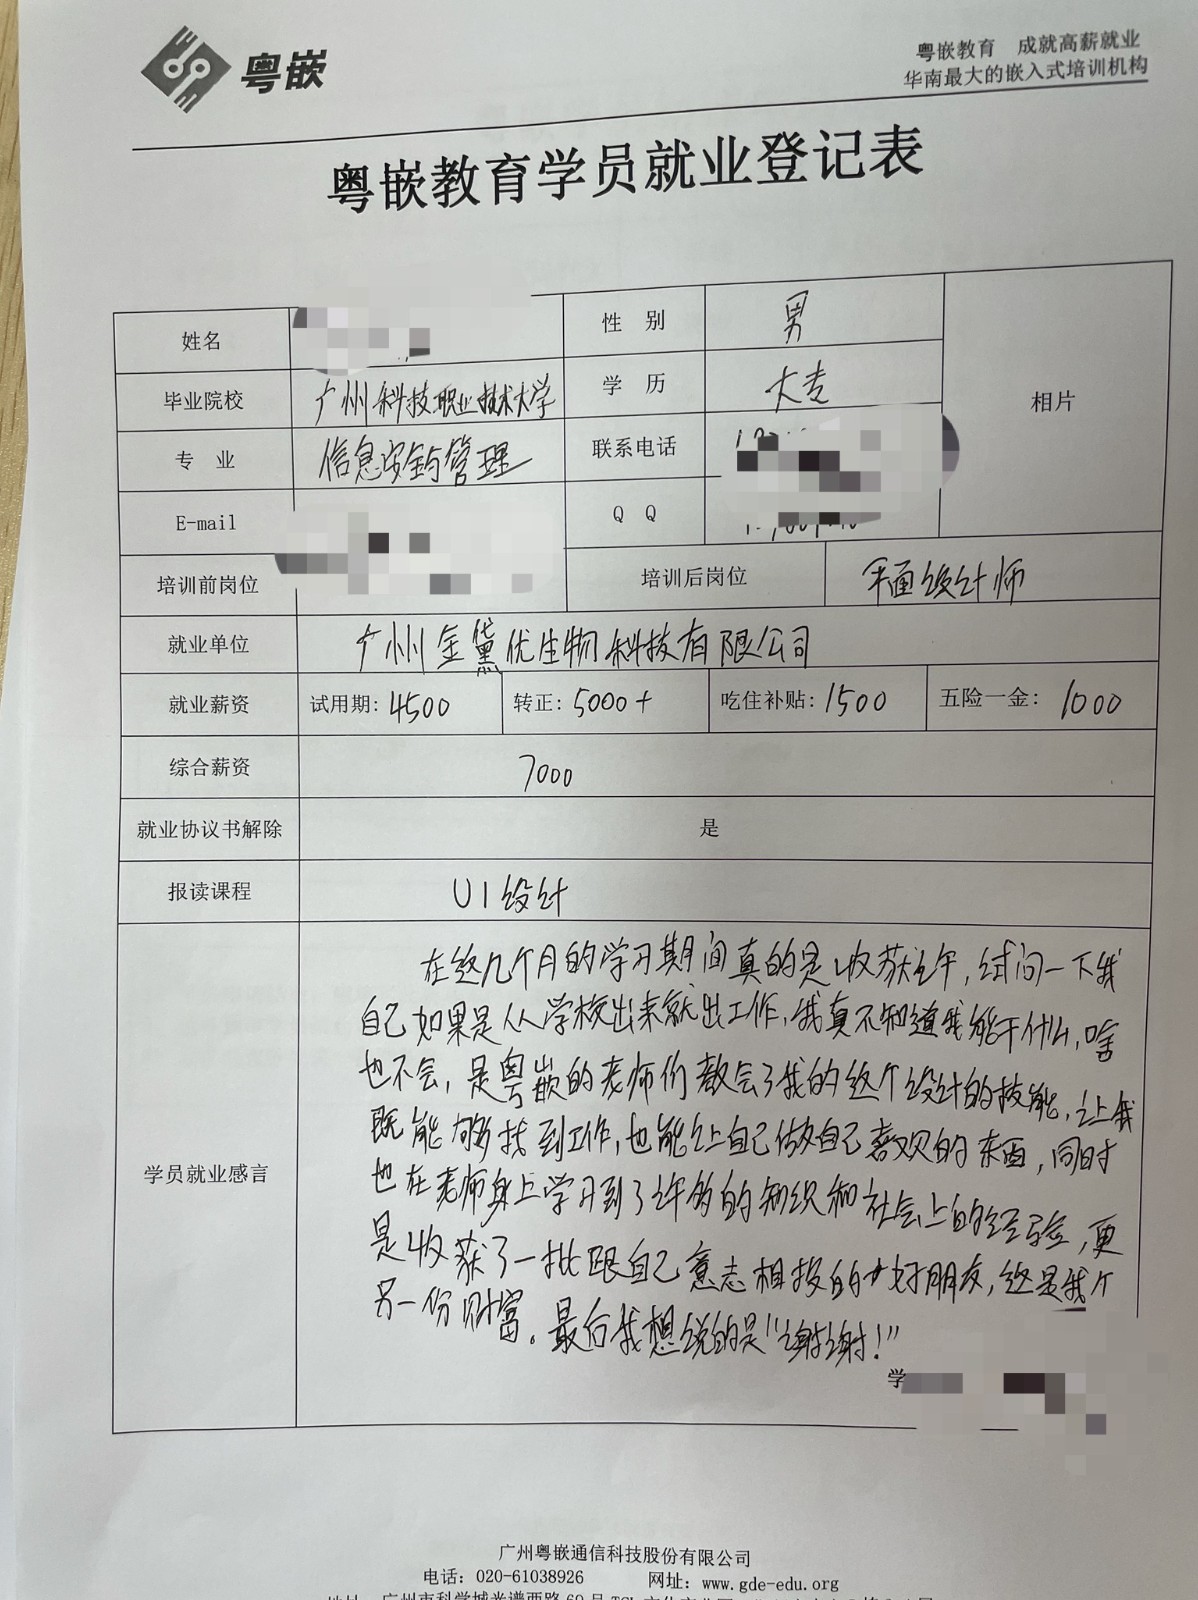 粤嵌
粤嵌教育 成就高薪就业
华南最大的嵌入式培训机构
粤嵌教育学员就业登记表
姓名
性 别 男
相片
毕业院校 广州科技职业技术大学
学 历 大专
专 业 信息安全与管理
联系电话
E-mail
Q Q
培训前岗位
培训后岗位 平面设计师
就业单位 广州金黛优生物科技有限公司
就业薪资 试用期: 4500 转正: 5000+ 吃住补贴: 1500 五险一金: 1000
综合薪资 7000
就业协议书解除 是
报读课程 UI设计
学员就业感言
在这几个月的学习期间真的是收获许,试问一下我
自己如果是从学校出来就出工作,我真不知道我能干什么,啥
也不会,是粤嵌的老师们教会了我的这个设计的技能,让我
既能够找到工作,也能让自己做自己喜欢的东西,同时
也在老师身上学习到了许多的知识和社会上的经验,更
是收获了一批跟自己意志相投的好朋友,这是我个
另一份财富。最后我想说的是"谢谢!"
学
广州粤嵌通信科技股份有限公司
电话: 020-61038926 网址: www.gde-edu.org